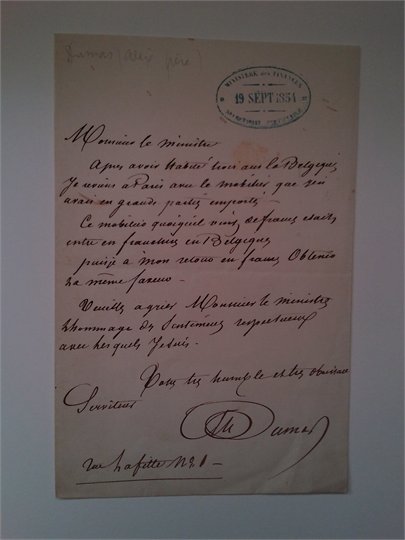 Dumas (Alex père)
MINISTÈRE DES FINANCES
19 SEPT 1854
Monsieur le ministre
Apres avoir habité trois ans la Belgique,
Je reviens a Paris avec le mobilier que j'en
avais en grande partie emporté
Ce mobilier quoiqu'il vint de france etait
entré en franchise en Belgique
puisje a mon retour en france Obtenir
la même faveur -
Veuillez agréer Monsieur le ministre
l'hommage des Sentiments respectueux
avec lesquels Je suis.
Votre tres humble et tres obeissant
Serviteur
Dumas
rue Lafitte No 1 -